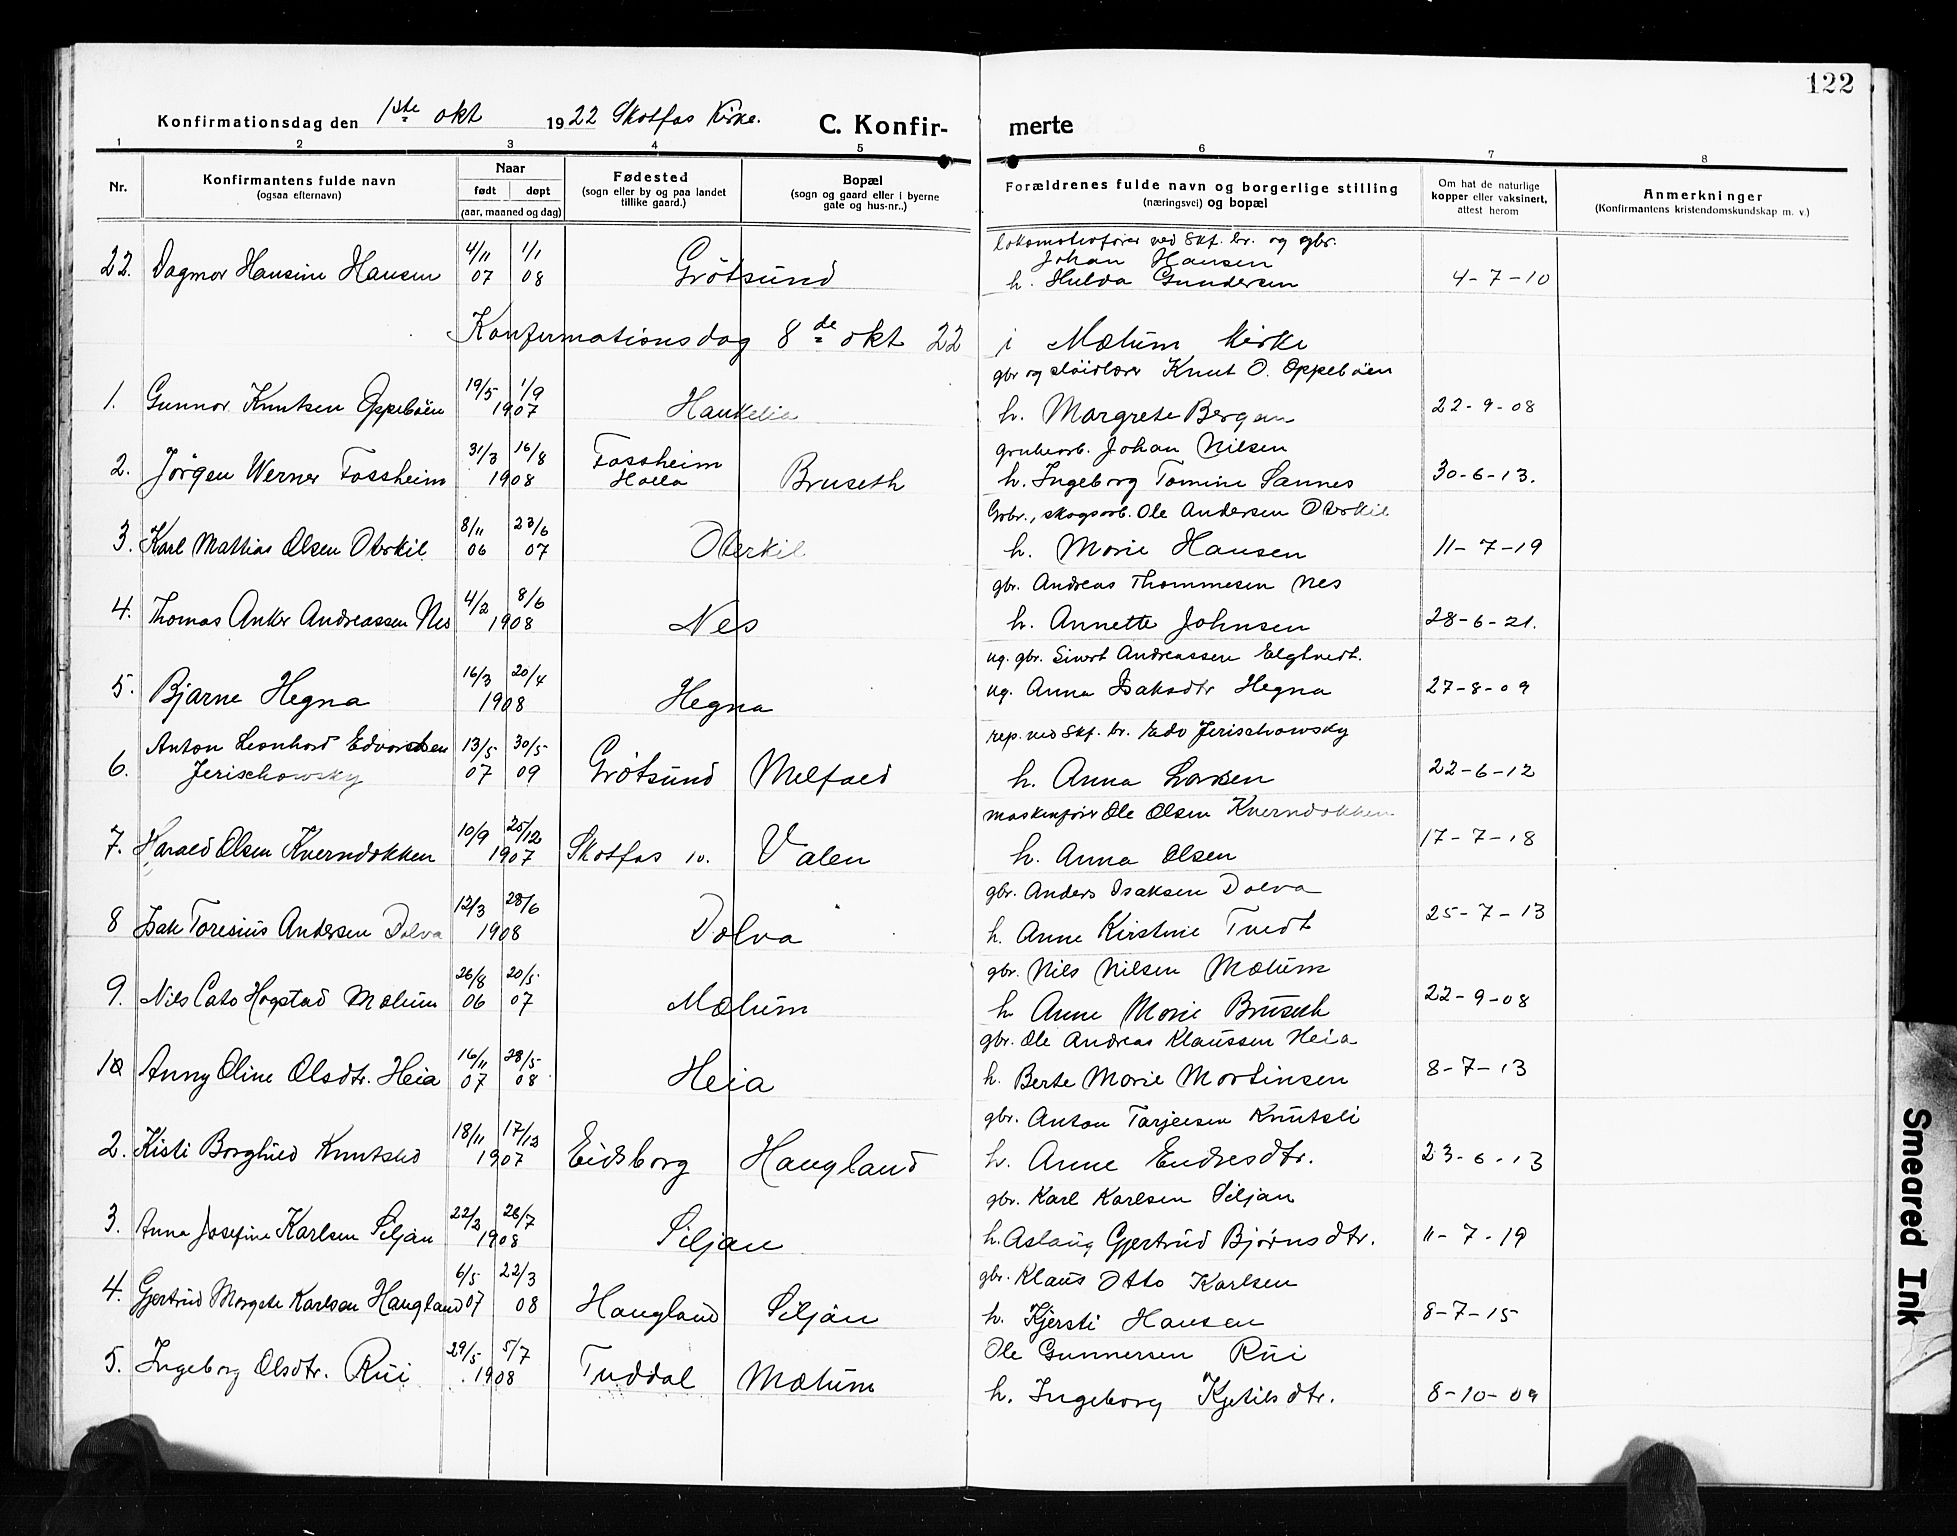 122
Konfirmationsdag den 1ste okt 1922 Skotfos Kirke. C. Konfir- merte
1 2 3 4 5 6 7 8
Nr. Konfirmantens fulde navn (ogsaa efternavn) Naar født døpt (aar, maaned og dag) Fødested (sogn eller by og paa landet tillike gaard.) Bopæl (sogn og gaard eller i byerne gate og hus-nr..) Forældrenes fulde navn og borgerlige stilling (næringsvei) og bopæl Om hat de naturlige kopper eller vaksinert, attest herom Anmerkninger (Konfirmantens kristendomskundskap m. v.)
lokomotivfører ved Skf. br. og gbr.
22. Dagmar Hansine Hansen 4/11 07 1/1 08 Grötsund Johan Hansen
h. Hulda Gundersen 4-7-10
Konfirmationsdag 8de okt 22 i Mælum kirke
gbr og sløidlærer Knut O. Oppebøen
1. Gunnar Knutsen Oppebøen 19/5 1/9 1907 Haukelia h. Margrete Bergan 22-9-08
grubearb. Johan Nilsen
2. Jørgen Werner Fossheim 31/3 16/8 1908 Fossheim Holla Bruseth h. Ingeborg Tomine Sannes 30-6-13.
Gbr., skogsarb. Ole Andersen Oterkil
3. Karl Mathias Olsen Oterkil 8/11 06 23/6 07 Oterkil h. Marie Hansen 11-7-19
gbr. Andreas Thommesen Nes
4. Thomas Anker Andreassen Nes 4/2 8/6 1908 Nes h. Annette Johnsen 28-6-21.
ug. gbr. Sivert Andreassen Elgtvedt.
5. Bjarne Hegna 16/3 20/4 1908 Hegna ug. Anna Isaksdtr Hegna 27-8-09
rep. ved Skf. br. Edv Jerischowsky
6. Anton Leonhard Edvardsen Jerischowsky 13/5 07 30/5 09 Grötsund Melfald h. Anna Larsen 22-6-12
maskinfører Ole Olsen Kverndokken
7. Harald Olsen Kverndokken 10/9 25/12 1907 Skotfos 10. Valen h. Anna Olsen 17-7-18
gbr. Anders Isaksen Dolva
8 Isak Toresius Andersen Dolva 12/3 28/6 1908 Dolva h. Anne Kirstine Tvedt 25-7-13
gbr. Nils Nilsen Mælum
9. Nils Cato Hogstad Mælum 26/8 06 20/5 07 Mælum h. Anne Marie Bruseth 22-9-08
gbr. Ole Andreas Klaussen Heia
10 Anny Oline Olsdtr. Heia 16/11 07 28/5 08 Heia h. Berte Marie Mortinsen 8-7-13
gbr. Anton Tarjeisen Knutsli
2. Kisti Borghild Knutsli 18/11 17/12 1907 Eidsborg Haugland h. Anne Endresdtr. 23-6-13
gbr. Karl Karlsen Siljan
3. Anna Josefine Karlsen Siljan 22/2 26/7 1908 Siljan h. Aslaug Gjertrud Bjørnsdtr. 11-7-19
gbr. Klaus Otto Karlsen
4. Gjertrud Margete Karlsen Haugland 6/5 07 22/3 08 Haugland Siljan h. Kjersti Hansen 8-7-15
Ole Gunnersen Rui
5. Ingeborg Olsdtr. Rui 29/5 5/7 1908 Tuddal Mælum h. Ingeborg Kjetilsdtr. 8-10-09
Smeared Ink